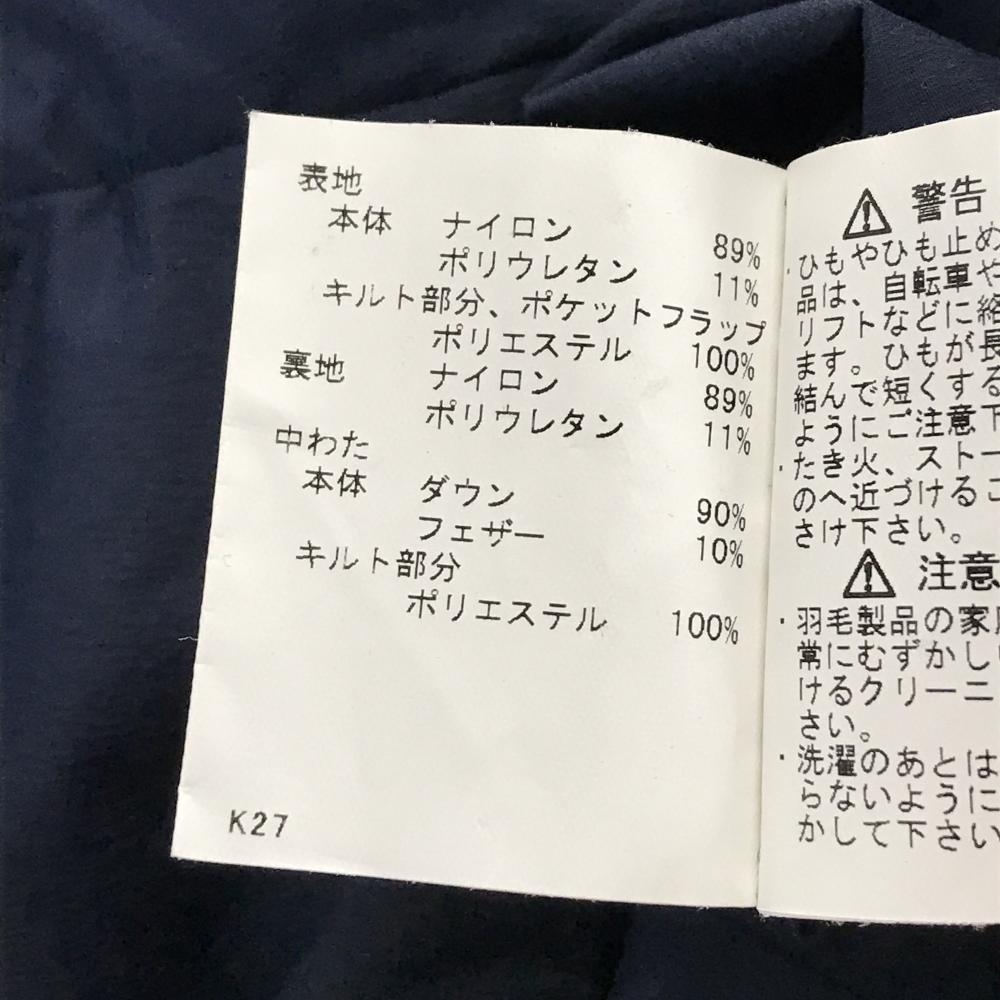 表地
本体 ナイロン 89%
ポリウレタン 11%
キルト部分、ポケットフラップ
ポリエステル 100%
裏地 ナイロン 89%
ポリウレタン 11%
中わた
本体 ダウン 90%
フェザー 10%
キルト部分
ポリエステル 100%
K27
警告
・ひもやひも止め
品は、自転車や
リフトなどに絡
ます。ひもが長
結んで短くする
ようにご注意下
・たき火、ストー
のへ近づけるこ
さけ下さい。
注意
・羽毛製品の家
常にむずかし
けるクリーニ
さい。
・洗濯のあとは
らないように
かして下さい